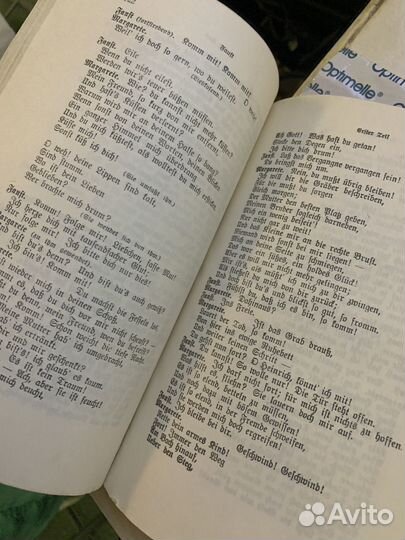 Faust
Faust (fortstrebend). Komm mit! Komm mit!
Margarete. O weil'!
Weil' ich doch so gern, wo du weilest. (Liebkosend.)
Faust. Eile!
Wenn du nicht eilest,
Werden wir's teuer büßen müssen.
Margarete. Wie? du kannst nicht mehr küssen?
Mein Freund, so kurz von mir entfernt,
Und hast's Küssen verlernt?
Warum wird mir an deinem Halse so bang?
Wenn sonst von deinen Worten, deinen Blicken
Ein ganzer Himmel mich überdrang,
Und du mich küßtest, als wolltest du mich ersticken.
Küsse mich!
Sonst küss' ich dich!
(Sie umfaßt ihn.)
O weh! deine Lippen sind kalt,
Sind stumm.
Wo ist dein Lieben
Geblieben?
Wer brachte mich drum?
(Sie wendet sich von ihm.)
Faust. Komm! Folge mir! Liebchen, fasse Mut!
Ich herze dich mit tausendfacher Glut;
Nur folge mir! Ich bitte dich nur dies!
Und bist du's denn? Und bist du's auch gewiß?
bin's! Komm mit!
Du machst die Fesseln los,
wieder mich in deinen Schoß.
du dich vor mir nicht scheust?
du denn, mein Freund, wen du befreist?
Schon weicht die tiefe Nacht.
Mutter hab' ich umgebracht,
ich ertränkt.
und mir geschenkt?
bist's! ich glaub' es kaum.
Es ist kein Traum!
— Ach, aber sie ist feucht!
mich deucht,
Erster Teil
Ach Gott! Was hast du getan!
Stecke den Degen ein,
Ich bitte dich drum!
Faust. Laß das Vergangne vergangen sein!
Du bringst mich um.
Margarete. Nein, du mußt übrig bleiben!
Ich will dir die Gräber beschreiben,
Für die mußt du sorgen
Gleich morgen;
Der Mutter den besten Platz geben,
Meinen Bruder sogleich darneben,
Mich ein wenig beiseit',
Nur nicht gar zu weit!
Und das Kleine mir an die rechte Brust.
Niemand wird sonst bei mir liegen! —
Mich an deine Seite zu schmiegen,
Das war ein süßes, ein holdes Glück!
Aber es will mir nicht mehr gelingen;
Mir ist's, als müßt' ich mich zu dir zwingen,
Als stießest du mich von dir zurück;
Und doch bist du's und blickst so gut, so fromm.
Faust. Fühlst du, daß ich es bin, so komm!
Margarete. Dahinaus?
Faust. Ins Freie.
Margarete. Ist das Grab drauß,
Lauert der Tod, so komm!
Von hier ins ewige Ruhebett
Und weiter keinen Schritt —
Du gehst nun fort? O Heinrich, könnt' ich mit!
Faust. Du kannst! So wolle nur! Die Tür steht offen.
Margarete. Ich darf nicht fort; für mich ist nichts zu hoffen.
Was hilft es fliehn? Sie lauern doch mir auf.
Es ist so elend, betteln zu müssen,
Und noch dazu mit bösem Gewissen!
Es ist so elend, in der Fremde schweifen,
Und sie werden mich doch ergreifen!
Faust. Ich bleibe bei dir.
Margarete. Geschwind! Geschwind!
Rette dein armes Kind!
Fort! Immer den Weg
Am Bach hinauf,
Ueber den Steg,
Optimelle®
Avito